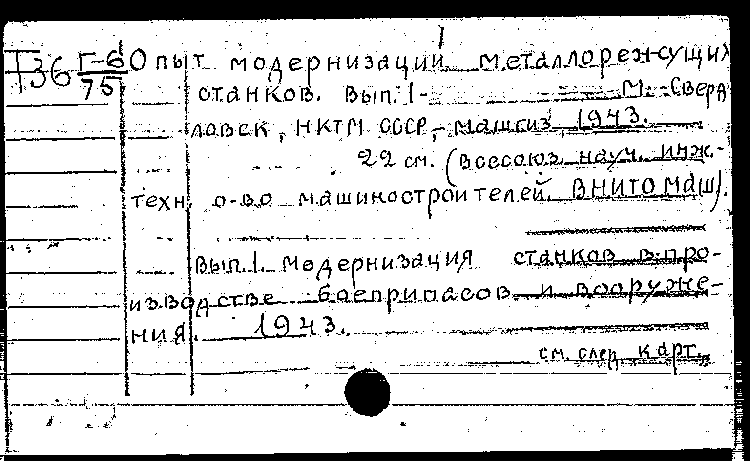 1
Т36 Г-6/75 Опыт модернизации металлорежущих
станков. Вып. 1- М.-Сверд
ловск, НКТМ СССР,- Машгиз, 1943.
22 см. (Всесоюз. науч. инж.-
техн. о-во машиностроителей ВНИТОМАШ).
Вып. 1. Модернизация станков в про-
изводстве боеприпасов и вооруже-
ния. 1943.
см. след. карт.